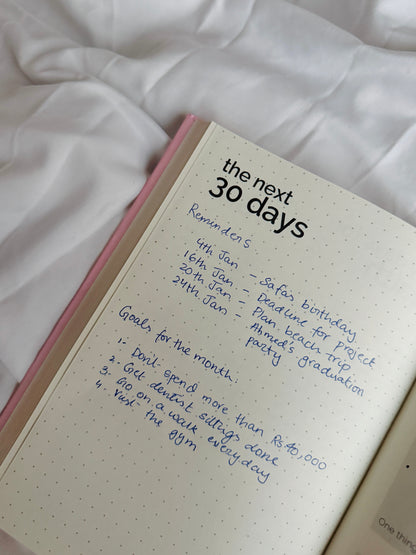 the next
30 days
Reminders
4th Jan - Safa's birthday
16th Jan - Deadline for project
20th Jan - Plan beach trip
24th Jan - Ahmed's graduation
party
Goals for the month:
1. Don't spend more than Rs 10,000
2. Get dentist sittings done
3. Go on a walk everyday
4. Visit the gym
One thing